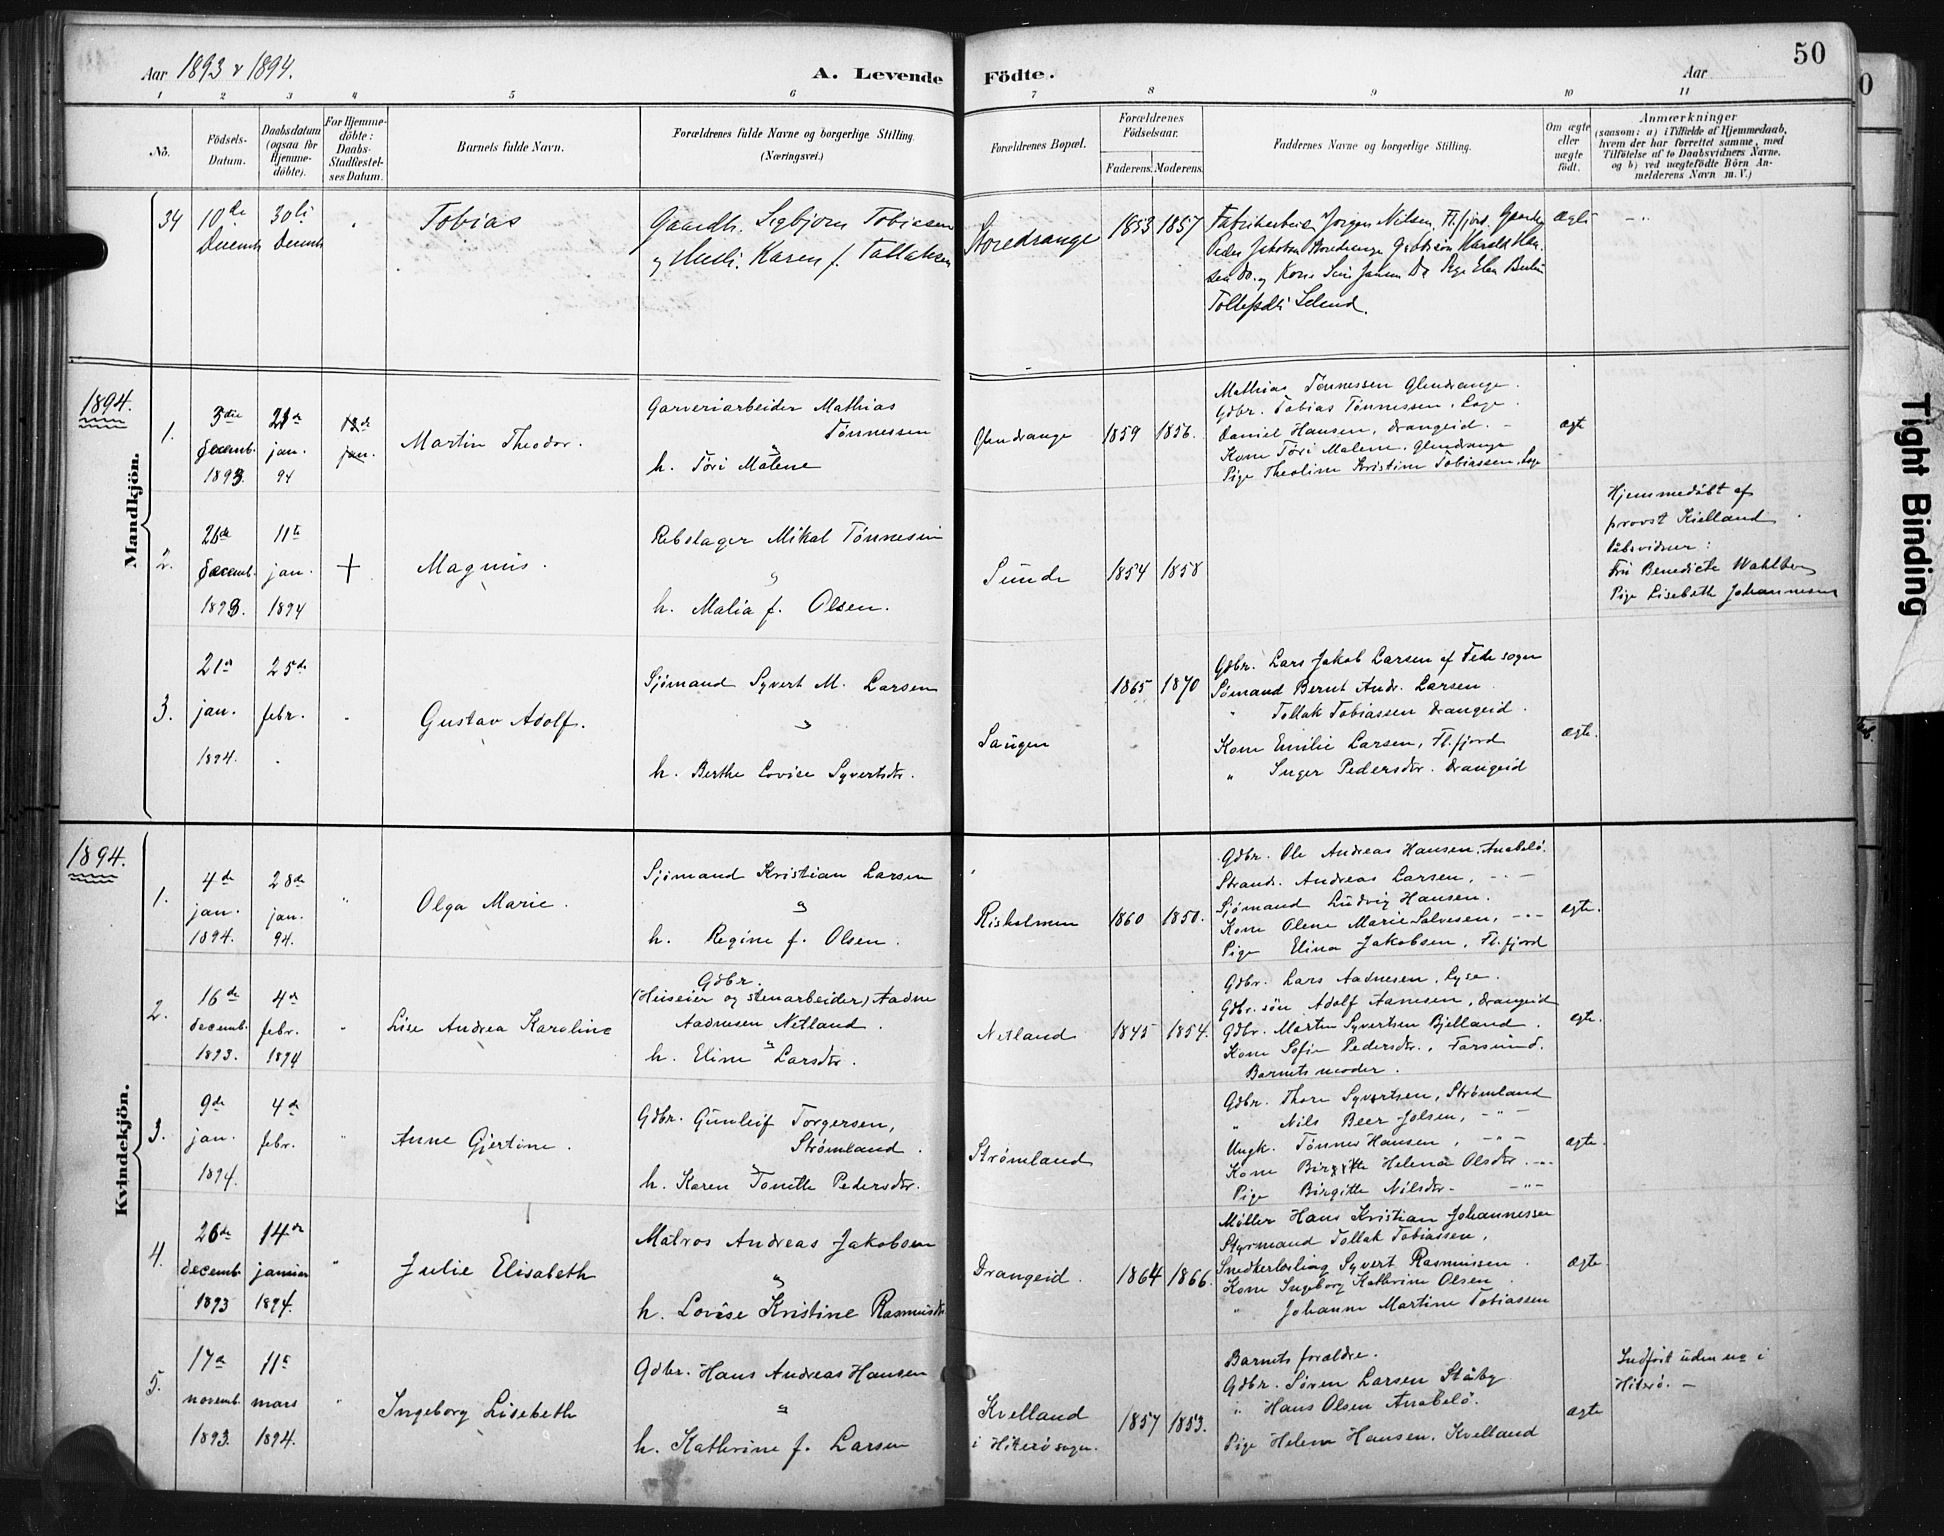 Aar 1893 & 1894.
A. Levende Födte.
Aar
50
1 2 3 4 5 6 7 8 9 10 11
No.
Födsels-Datum.
Daabsdatum (ogsaa for Hjemme-döbte).
For Hjemme-döbte: Daabs-Stadfæstel-ses Datum.
Barnets fulde Navn.
Forældrenes fulde Navne og borgerlige Stilling.
(Næringsvei.)
Forældrenes Bopæl.
Forældrenes Födselsaar.
Faderens. Moderens.
Faddernes Navne og borgerlige Stilling.
Om ægte eller uægte födt.
Anmærkninger
(saasom: a) i Tilfælde af Hjemmedaab, hvem der har forrettet samme, med Tilföielse af to Daabsvidners Navne, og b) ved uægtefödte Börn An-melderens Navn m. V.)
34 10de 30te
Decemb Decemb
Tobias
Gaardb. Sigbjørn Tobiasen
og Karen f. Tallaksen
Storedrange
1853 1857
Jørgen Nilsen, Fl.fjord
Peder Jakobsen Storedrange
Harald
Selund.
ægte
Mandkjön.
1894.
1. 3die decemb. 1893. 21de jan. 94
jan.
Martin Theodor.
Garveriarbeider Mathias
Tønnessen
h. Tøri Malene
Glendrange
1859 1856.
Mathias Tønnessen Glendrange.
Gdbr. Tobias Tønnessen,
Daniel Hansen, Drangeid.
Kone Tøri Malene, Glendrange
Pige Theoline Kristine Tobiassen,
ægte
2. 26de decemb. 1893. 11te jan. 1894
+
Magnus.
Rebslager Mikal Tønnesen
&
h. Malia f. Olsen.
Sunde
1854 1858
Hjemmedøbt af
provst Kielland.
Dåbsvidner:
Fru Benedicte Wahlberg
Pige Lisebeth Johannesen
3. 21de jan. 1894. 25de febr.
Gustav Adolf.
Sjømand Syvert M. Larsen
&
h. Berthe Lovise Syvertsdtr.
Saugen
1865 1870
Gdbr. Lars Jakob Larsen af Fede sogn
Sømand Bernt Andr. Larsen
" Tollak Tobiassen Drangeid.
Kone Emilie Larsen, Fl.fjord
" Inger Pedersdtr. Drangeid
ægte.
Kvindekjön.
1894.
1. 4de jan. 1894. 28de jan. 94.
Olga Marie.
Sjømand Kristian Larsen
&
h. Regine f. Olsen.
Risholmen
1860 1850.
Gdbr. Ole Andreas Hansen, Anabelø.
Strands. Andreas Larsen, - " -
Sjømand Ludvig Hansen.
Kone Olene Marie Salvesen, - " -
Pige Elina Jakobsen, Fl.fjord
ægte.
2. 16de decemb. 1893. 4de febr. 1894
Lise Andrea Karoline
Gdbr.
(Huseier og stenarbeider) Aadne
Aadnesen Netland.
&
h. Eline Larsdtr.
Netland
1845 1854.
Gdbr. Lars Aadnesen, Lyse.
Gdbr. søn Adolf Aanesen, Drangeid
Gdbr. Martin Syvertsen Bjelland.
Kone Sofie Pedersdtr., Farsund.
Barnets moder.
ægte.
3. 9de jan. 1894. 4de febr.
Anne Gjertine.
Gdbr. Gunleif Torgersen,
Strømland.
&
h. Karen Tonette Pedersdtr.
Strømland
Gdbr. Thore Syvertsen, Strømland
" Nils Beer Jolsen, - " -
Ungk. Tønnes Hansen, - " -
Kone Birgitte Helena Olsdtr. - " -
Pige Birgitte Nilsdtr. - " -
ægte.
4. 26de decemb. 1893 14de januar 1894.
Julie Elisabeth
Matros Andreas Jakobsen
&
h. Lovise Kristine Rasmusdtr.
Drangeid.
1864 1866.
Møller Hans Kristian Johannessen
Styrmand Tollak Tobiassen,
Snedkerlærling Syvert Rasmussen.
Kone Ingeborg Kathrine Olsen.
" Johanne Martine Tobiassen
ægte
5. 17de novemb. 1893. 11te mars 1894.
Ingeborg Lisebeth
Gdbr. Hans Andreas Hansen
&
h. Kathrine f. Larsen
Kvelland
i Hiterø sogn.
1857 1853.
Barnets forældre.
Gdbr. Søren Larsen Ståby
" Hans Olsen Anabelø.
Pige Helene Hansen, Kvelland
ægte
Indført uden no i
Hiterø. -
Tight Binding